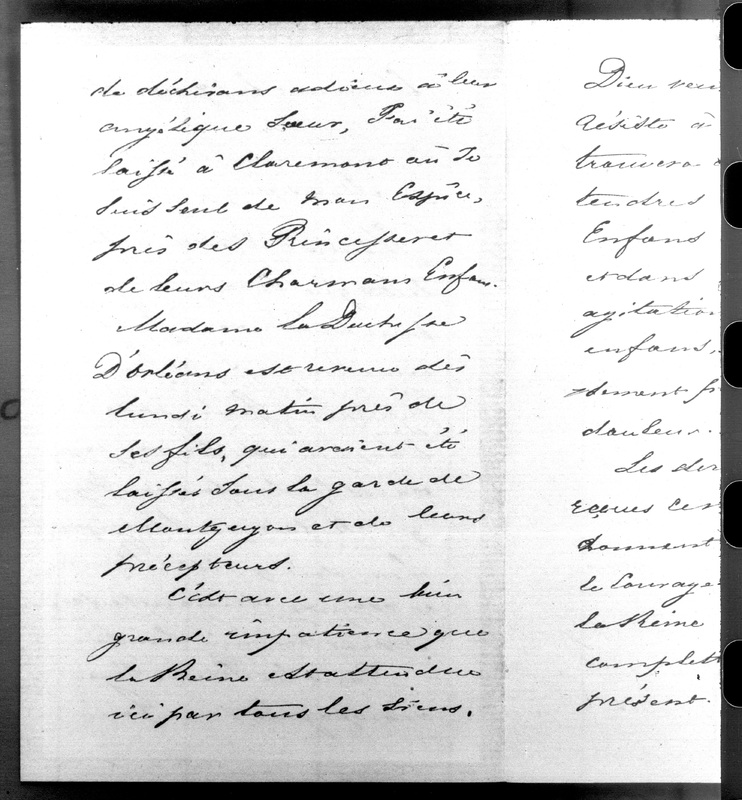 de déchirans adieux à leur
angélique Sœur, J'ai été
laissé à Claremont où Je
Suis seul de mon Espèce,
près des Princesses et
de leurs Charmans Enfans.
Madame la Duchesse
D'orléans est revenue dès
lundi matin près de
Ses fils, qui avoient été
laissés Sous la garde de
Montguyon et de leurs
précepteurs.
C'est avec une bien
grande impatience que
la Reine est attendue
ici par tous les Siens.
Dieu
résiste à
trouvera
tendres
Enfans
et dans
agitation
enfans,
douleur.
Les
donnent
le Courage
la Reine
présent.